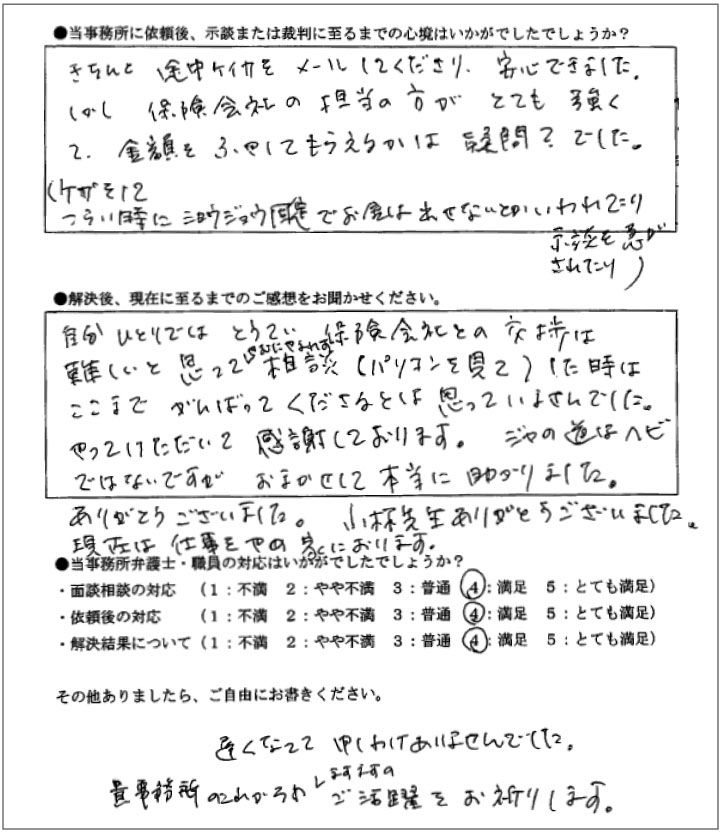 ●当事務所に依頼後、示談または裁判に至るまでの心境はいかがでしたでしょうか？
きちんと 途中ケイカを メールしてくださり、安心できました。
しかし 保険会社の 担当の方が とても 強く
て、金額を ふやしてもらえるかは 疑問？でした。
(ケガをして
つらい時に ショウジョウ固定でお金は出せないとかいわれたり
示談を急が
されたり)
●解決後、現在に至るまでのご感想をお聞かせください。
自分 ひとりでは とうてい 保険会社との 交渉は
難しいと 思って 相談 (パソコンを見て) した時は
ここまで がんばって くださるとは 思っていませんでした。
やっていただいて 感謝しております。 ジャの道はヘビ
ではないですが おまかせして 本当に 助かりました。
ありがとうございました。 小林先生ありがとうございました。
現在は 仕事をやめ 家におります。
●当事務所弁護士・職員の対応はいかがでしたでしょうか？
・面談相談の対応 （1：不満 2：やや不満 3：普通 4：満足 5：とても満足）
・依頼後の対応 （1：不満 2：やや不満 3：普通 4：満足 5：とても満足）
・解決結果について （1：不満 2：やや不満 3：普通 4：満足 5：とても満足）
その他ありましたら、ご自由にお書きください。
遅くなって 申しわけありませんでした。
貴事務所 のこれからの ますますの ご活躍を お祈りします。